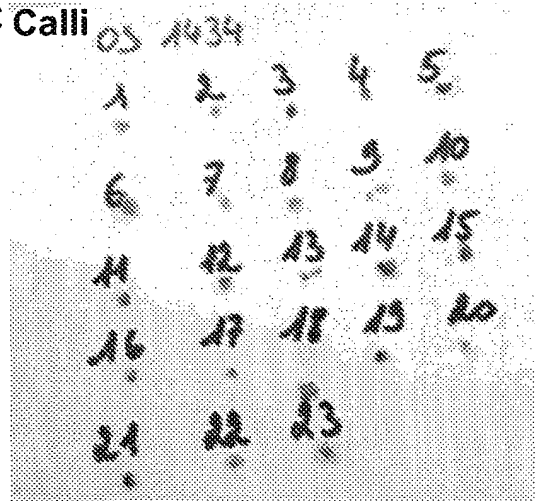 Calli
OS 1434
1 2 3 4 5
6 7 8 9 10
11 12 13 14 15
16 17 18 19 20
21 22 23